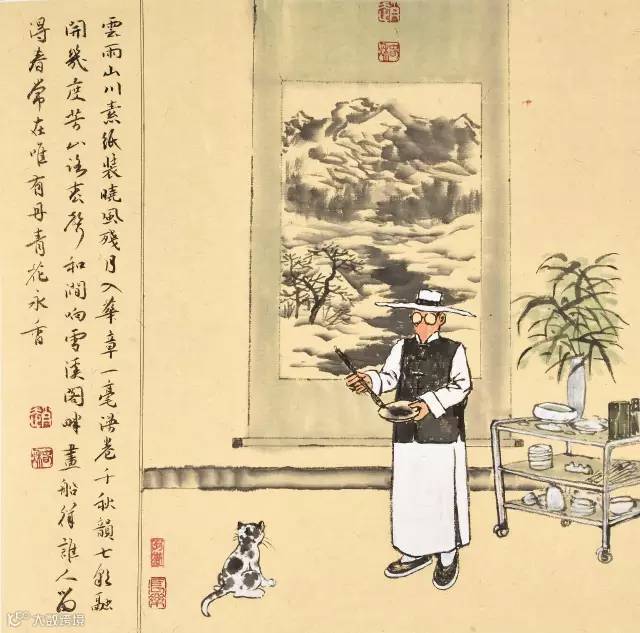 雲雨山川素紙裝曉風殘月入華章一毫漫卷千秋韻七彩融
開幾度芳山春聲和澗响雪溪閣畔畫船徉誰人留
得春常在唯有丹青花永香
大数跨境